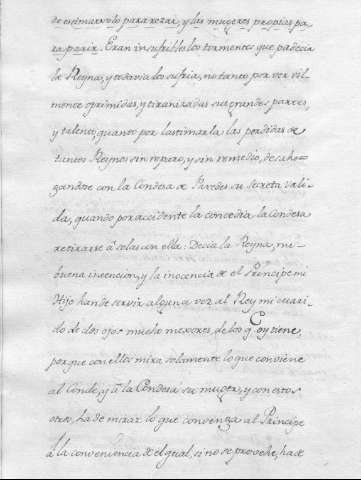 de estima solo para rezar, y las mugeres propias pa
ra parir. Eran insufribles los tormentos que padecia
la Reyna, y todavia los sufria, no tanto, por ver vil
mente oprimidas, y tiranizadas sus grandes partes,
y talento, quanto por lastimarla las perdidas de
tantos Reynos sin reparo, y sin remedio, desaho
gandose con la Condesa de Paredes su secreta vali
da, quando por accidente la concedia la Condesa
retirarse á solas con ella: Decia la Reyna, mi
buena intencion, y la inocencia de el Principe mi
Hijo han de servir alguna vez al Rey mi mari
do de dos ojos mucho mexores de los q.e oy tiene,
porque con ellos mira solamente lo que conviene
al Conde, y á la Condesa su muger, y con estos
otros, ha de mirar lo que convenga al Principe
á la conveniencia de el qual, si no se provehe, ha de